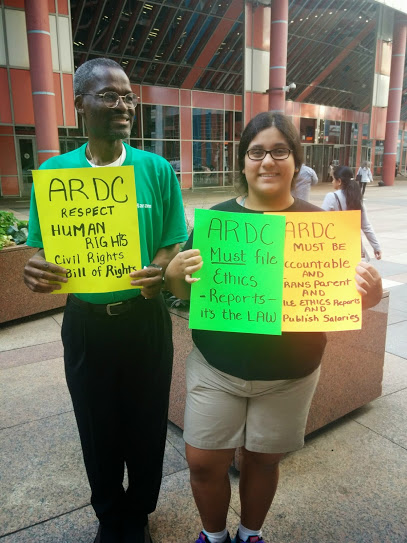 ARDC
RESPECT
HUMAN
RIGHTS
Civil Rights
Bill of Rights
ARDC
Must file
Ethics
-Reports-
its the LAW
ARDC
MUST BE
ccountable
AND
RANSPArent
AND
ILE EthICS REPorts
AND
Publish Salaries